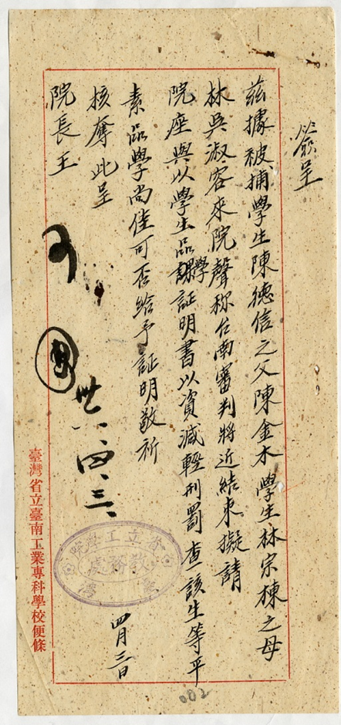 簽呈
茲據被捕學生陳德信之父陳金木學生林宗棟之母
林吳淑容來院聲称台南審判將近結束擬請
院座與以學生品學証明書以資減輕刑罰查該生等平
素品學尚佳可否給予証明敬祈
核奪此呈
院長王
可
卅六、四、三、
四月三日
臺灣省立臺南工業專科學校便條
002